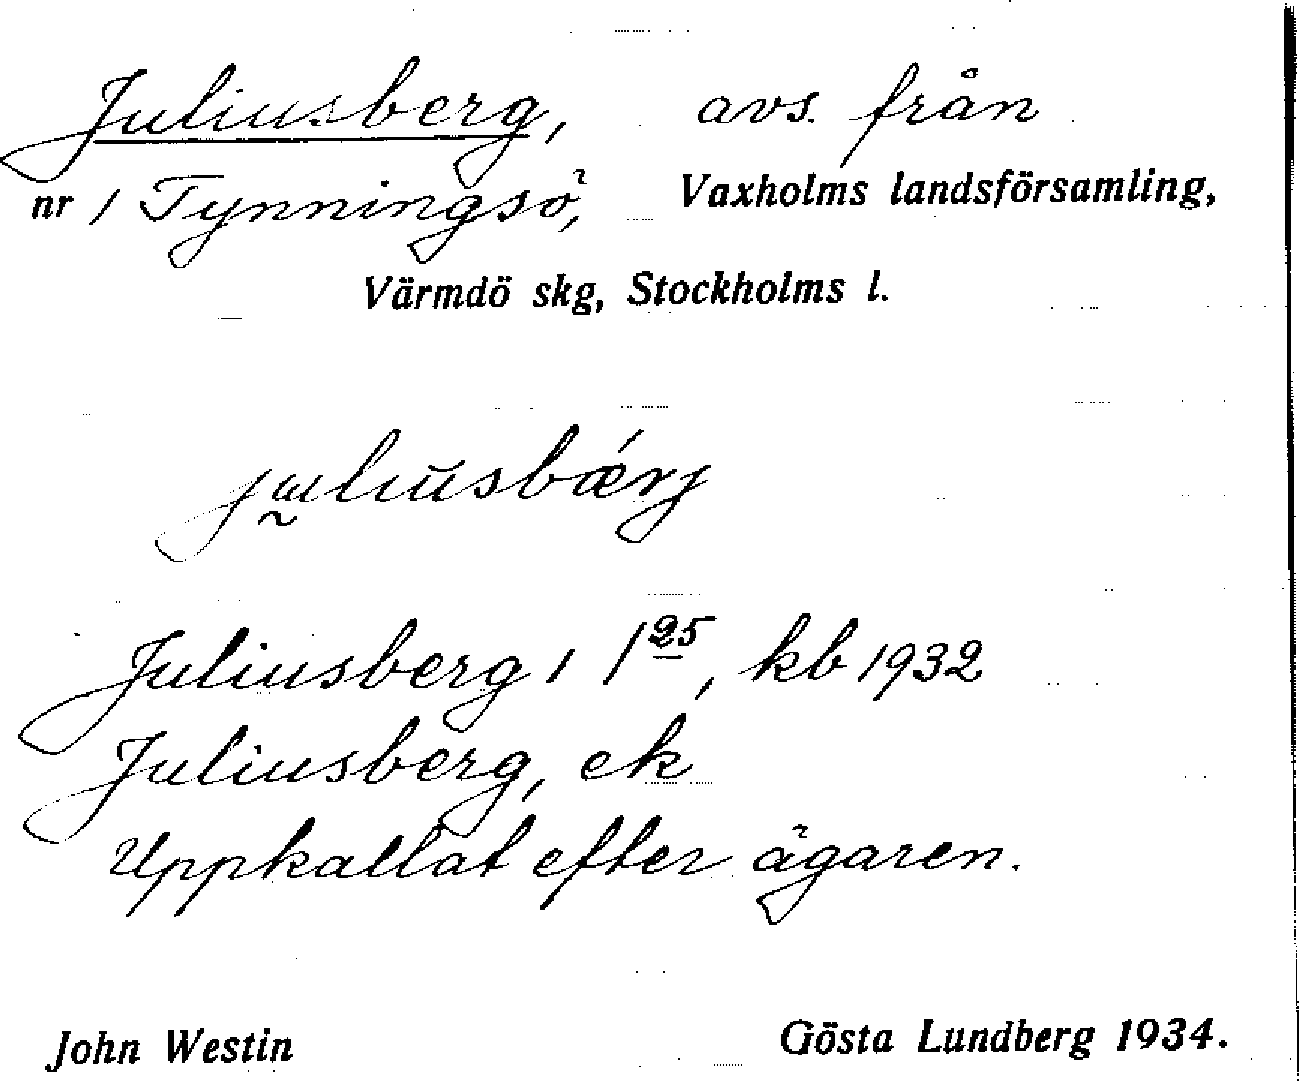 Juliusberg, avs. från
nr 1 Tynningsö, Vaxholms landsförsamling,
Värmdö skg, Stockholms l.
Juliusberg 1 1 25, kb 1932
Juliusberg, ek
Uppkallat efter ägaren.
John Westin Gösta Lundberg 1934.